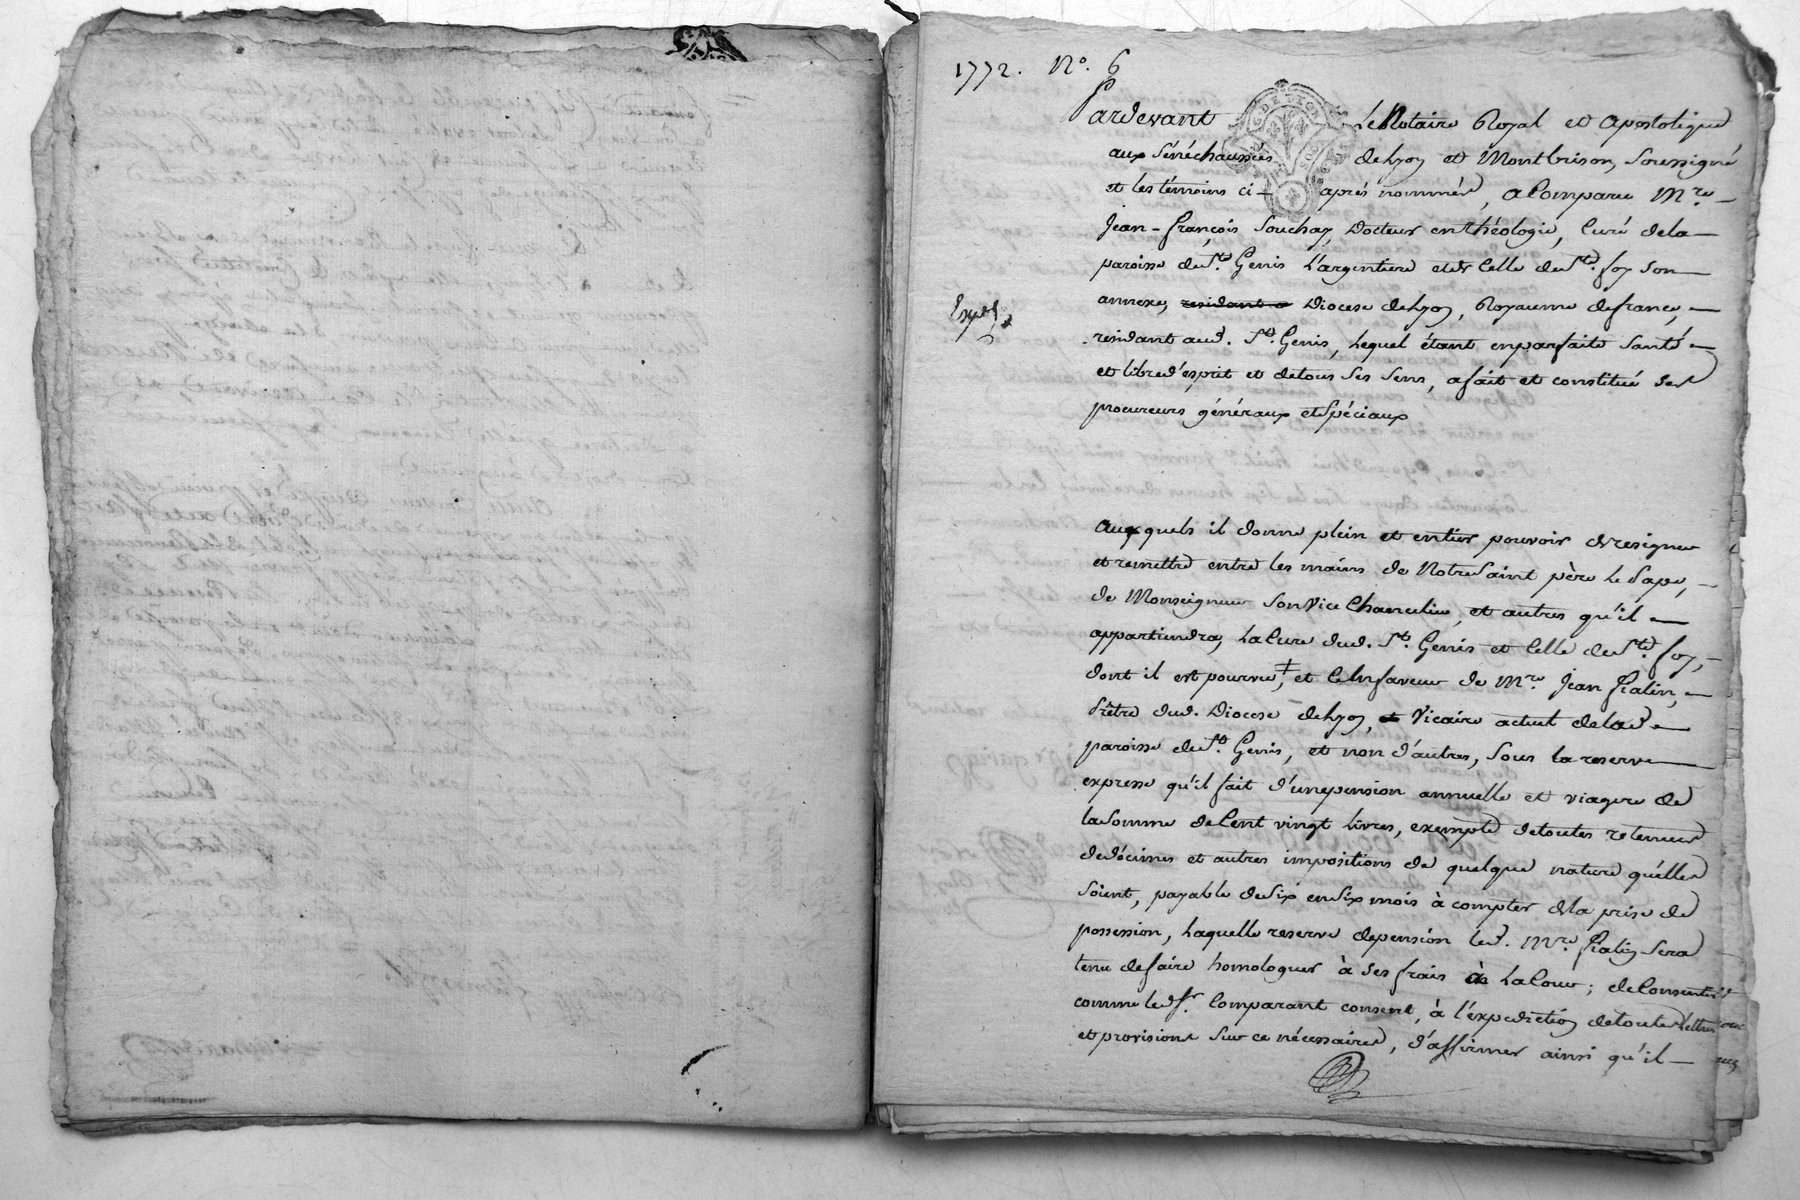 1772. N°. 6
Pardevant Le Notaire Royal et apostolique
aux Sénéchaussées de Lyon et Montbrison, soussigné
et les témoins ci- après nommés, a Comparu Mre.
Jean-françois Souchay, Docteur en théologie, Curé de la
paroisse de St. Genis L'argentiere et de Celle de Ste. foy son
annexe, residant a Diocese de Lyon, Royaume de france,
Exped
residant aud. St. Genis, Lequel étant en parfaite santé
et libre d'esprit et de tous ses sens, a fait et constitué ses
procureurs généraux et spéciaux
auxquels il donne plein et entier pouvoir de resigner
et remettre entre les mains de Notre Saint père Le Pape,
de Monseigneur son Vice Chancelier, et autres qu'il
appartiendra, La Cure dud. St. Genis et Celle de Ste. foy,
dont il est pourvu, et ce en faveur de Mre. Jean Fralin,
Prêtre dud. Diocese de Lyon, et Vicaire actuel de lad.
paroisse de St. Genis, et non d'autres, sous la reserve
expresse qu'il fait d'une pension annuelle et viagere de
la somme de Cent vingt Livres, exempte de toutes retenues
de décimes et autres impositions de quelque nature qu'elles
soient, payable de six en six mois à compter de la prise de
possession, Laquelle reserve de pension led. Mre. Fralin sera
tenu de faire homologuer à ses frais à La Cour; de Consentir
comme led. Sr. Comparant consent, à l'expedition de toutes Lettres
et provisions sur ce nécessaires, d'affirmer ainsi qu'il